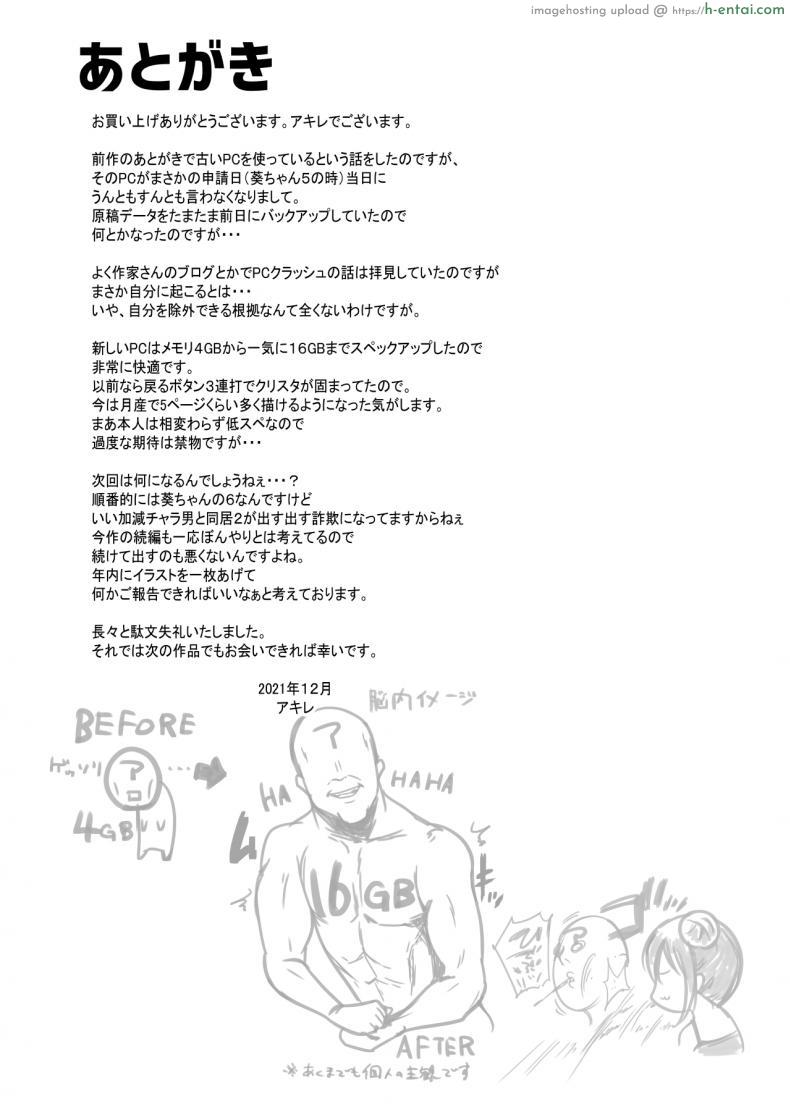 imagehosting upload @ https://h-entai.com
あとがき
お買い上げありがとうございます。アキレでございます。
前作のあとがきで古いPCを使っているという話をしたのですが、
そのPCがまさかの申請日（葵ちゃん５の時）当日に
うんともすんとも言わなくなりまして。
原稿データをたまたま前日にバックアップしていたので
何とかなったのですが・・・
よく作家さんのブログとかでPCクラッシュの話は拝見していたのですが
まさか自分に起こるとは・・・
いや、自分を除外できる根拠なんて全くないわけですが。
新しいPCはメモリ４GBから一気に１６GBまでスペックアップしたので
非常に快適です。
以前なら戻るボタン３連打でクリスタが固まってたので。
今は月産で5ページくらい多く描けるようになった気がします。
まあ本人は相変わらず低スペなので
過度な期待は禁物ですが・・・
次回は何になるんでしょうねぇ・・・？
順番的には葵ちゃんの６なんですけど
いい加減チャラ男と同居２が出す出す詐欺になってますからねぇ
今作の続編も一応ぼんやりとは考えてるので
続けて出すのも悪くないんですよね。
年内にイラストを一枚あげて
何かご報告できればいいなぁと考えております。
長々と駄文失礼いたしました。
それでは次の作品でもお会いできれば幸いです。
2021年１２月
アキレ
脳内イメージ
BEFORE
ゲッソリ
ア
ロ
...
4GB
ア
HA
HAHA
ム
キッ
16GB
AFTER
※あくまでも個人の主観です